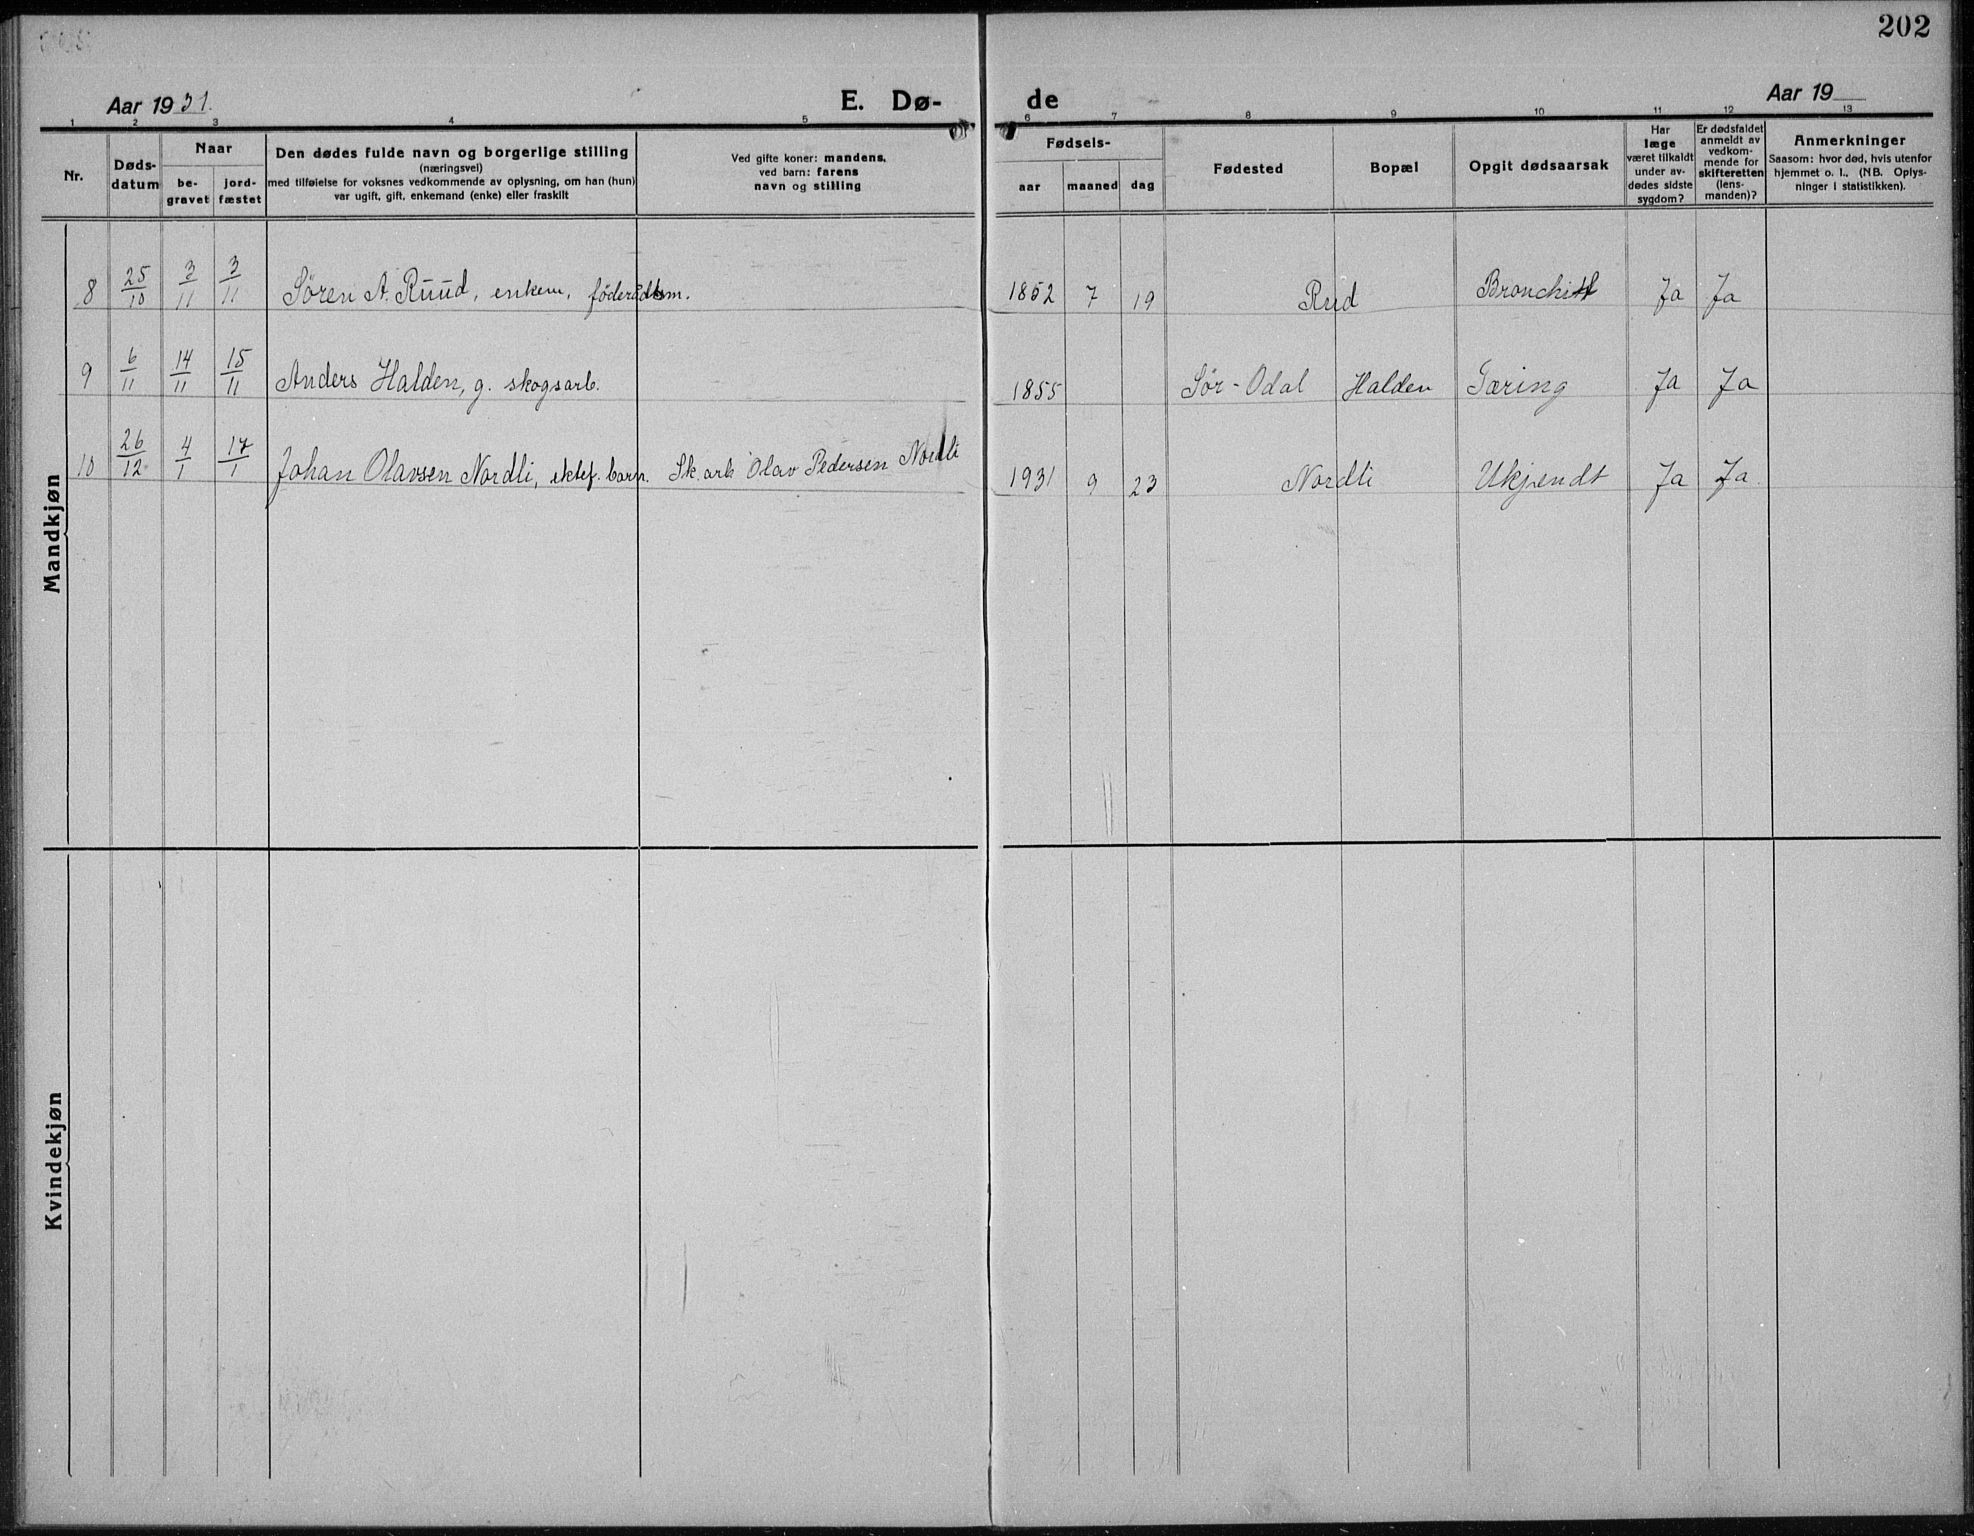 202
Aar 1931.
E. Dø-
de
Aar 19
1 2 3 4 5 6 7 8 9 10 11 12 13
Nr.
Døds-
datum
Naar
be-
gravet
jord-
fæstet
Den dødes fulde navn og borgerlige stilling
(næringsvei)
med tilføielse for voksnes vedkommende av oplysning, om han (hun)
var ugift, gift, enkemand (enke) eller fraskilt
Ved gifte koner: mandens,
ved barn: farens
navn og stilling
Fødsels-
aar maaned dag
Fødested
Bopæl
Opgit dødsaarsak
Har
læge
været tilkaldt
under av-
dødes sidste
sygdom?
Er dødsfaldet
anmeldt av
vedkom-
mende for
skifteretten
(lens-
manden)?
Anmerkninger
Saasom: hvor død, hvis utenfor
hjemmet o. l., (NB. Oplys-
ninger i statistikken).
Mandkjøn
8 25/10 3/11 3/11 Søren A. Ruud, enkem, föderådsm. 1852 7 19 Rud Bronchitt Ja Ja
9 6/11 14/11 15/11 Anders Halden, g. skogsarb. 1855 Sør-Odal Halden Tæring Ja Ja
10 26/12 4/1 17/1 Johan Olavsen Nordli, ektef. barn. Sk. arb Olav Pedersen Nordli 1931 9 23 Nordli Ukjendt Ja Ja
Kvindekjøn